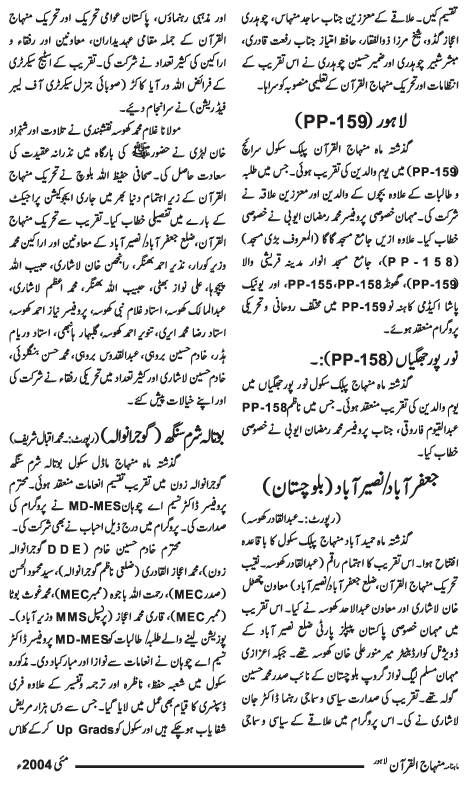 تقسیم کیں۔ علاقے کے معززین جناب ساجد منہاس، چوہدری
اعجاز گڈو، شیخ مرزا ذوالفقار، حافظ امتیاز جناب رفعت قادری،
مبشر شبیر چوہدری اور ضمیر حسین چوہدری نے اس تقریب کے
انتظامات اور تحریک منہاج القرآن کے تعلیمی منصوبہ کو سراہا۔
لاہور (PP-159)
گذشتہ ماہ منہاج القرآن پبلک سکول سرائچ
(PP-159) میں یوم والدین کی تقریب ہوئی۔ جس میں طلبہ
و طالبات کے علاوہ بچوں کے والدین اور معززین علاقہ نے
شرکت کی۔ مہمان خصوصی پروفیسر محمد رمضان ایوبی نے خصوصی
خطاب کیا۔ علاوہ ازیں جامع مسجد گاگا (المعروف بڑی مسجد)
(PP-158)، جامع مسجد انوار مدینہ قریشی والا
(PP-159)، گھونڈ PP-158، PP-155، اور یونیک
پاشا اکیڈمی کاہنہ نو PP-159 میں مختلف روحانی و تحریکی
پروگرام منعقد ہوئے۔
نور پور جھگیاں (PP-158):۔
گذشتہ ماہ منہاج پبلک سکول نور پور جھگیاں میں
یوم والدین کی تقریب منعقد ہوئی۔ جس میں ناظم PP-158
عبدالقیوم فاروقی، جناب پروفیسر محمد رمضان ایوبی نے خصوصی
خطاب کیا۔
جعفر آباد/نصیر آباد (بلوچستان)
(رپورٹ:۔ عبدالقادر کھوسہ)
گذشتہ ماہ حمید آباد منہاج پبلک سکول کا باقاعدہ
افتتاح ہوا۔ اس تقریب کا اہتمام راقم (عبدالقادر کھوسہ۔ نقیب
تحریک منہاج القرآن، ضلع جعفر آباد/نصیر آباد) معاون چھٹل
خان لاشاری اور معاون عبدالاحد کھوسہ نے کیا۔ اس تقریب
میں مہمان خصوصی پاکستان پیپلز پارٹی ضلع نصیر آباد کے
ڈویژنل کوارڈینیٹر میر منور علی خان کھوسہ تھے۔ جبکہ اعزازی
مہمان مسلم لیگ نواز گروپ بلوچستان کے نائب صدر محمد حسین
گولہ تھے۔ تقریب کی صدارت سیاسی و سماجی رہنما ڈاکٹر جان
لاشاری نے کی۔ اس پروگرام میں علاقے کے سیاسی و سماجی
اور مذہبی رہنماؤں، پاکستان عوامی تحریک اور تحریک منہاج
القرآن کے جملہ مقامی عہدیداران، معاونین اور رفقاء و
اراکین کی کثیر تعداد نے شرکت کی۔ تقریب کے اسٹیج سیکرٹری
کے فرائض اللہ ورایا کاکڑ (صوبائی جنرل سیکرٹری آف لیبر
فیڈریشن) نے سرانجام دیئے۔
مولانا غلام محمد کھوسہ نقشبندی نے تلاوت اور شہزاد
خان لہڑی نے حضور ﷺ کی بارگاہ میں نذرانہ عقیدت کی
سعادت حاصل کی۔ صحافی حفیظ اللہ بلوچ نے تحریک منہاج
القرآن کے زیر اہتمام دنیا بھر میں جاری ایجوکیشن پراجیکٹ
کے بارے میں تفصیلی خطاب کیا۔ تقریب سے تحریک منہاج
القرآن، ضلع جعفر آباد/نصیر آباد کے معاونین اور اراکین محمد
وزیر کورار، نذیر احمد بھنگر، رانجھن خان لاشاری، حبیب اللہ
پیچوہا، علی نواز بھٹی، حبیب اللہ بھنگر، محمد اعظم لاشاری،
عبدالمالک کھوسہ، استاد غلام نبی کھوسہ، پروفیسر نیاز احمد کھوسہ،
استاد رضا محمد ابری، تنویر احمد کھوسہ، گلبہار ہانبھی، استاد وریام
ہڈر، خادم حسین بروہی، عبدالقدوس بروہی، محمد حسن بنگلزئی،
خادم حسین لاشاری اور کثیر تعداد میں تحریکی رفقاء نے شرکت کی
اور اپنے خیالات پیش کئے۔
بوتالہ شرم سنگھ (گوجرانوالہ) (رپورٹ:۔ محمد اقبال شریف)
گذشتہ ماہ منہاج ماڈل سکول بوتالہ شرم سنگھ
گوجرانوالہ زون میں تقریب تقسیم انعامات منعقد ہوئی۔ محترم
پروفیسر ڈاکٹر نسیم اے چوہان MD-MES نے پروگرام کی
صدارت کی۔ پروگرام میں درج ذیل احباب نے بھی شرکت کی۔
محترم خادم حسین خادم (DDE گوجرانوالہ
زون)، محمد اعجاز القادری (ضلعی ناظم گوجرانوالہ)، سید محمود الحسن
(صدر MEC)، رحمت اللہ باجوہ (ممبر MEC)، محمد غوث بوٹا
(ممبر MEC)، قاری محمد اعجاز (پرنسپل MMS وزیر آباد)۔
پوزیشن لینے والے طلبہ/ طالبات کو MD-MES پروفیسر ڈاکٹر
نسیم اے چوہان نے انعامات سے نوازا اور مبارکباد دی۔ مذکورہ
سکول میں شعبہ حفظ، ناظرہ اور ترجمہ و تفسیر کے علاوہ فری
ڈسپنسری کا قیام بھی عمل میں لایا گیا۔ جس سے دس ہزار مریض
شفایاب ہو چکے ہیں اور سکول کو Up Grads کر کے کلاس
ماہنامہ منہاج القرآن لاہور
مئی 2004ء